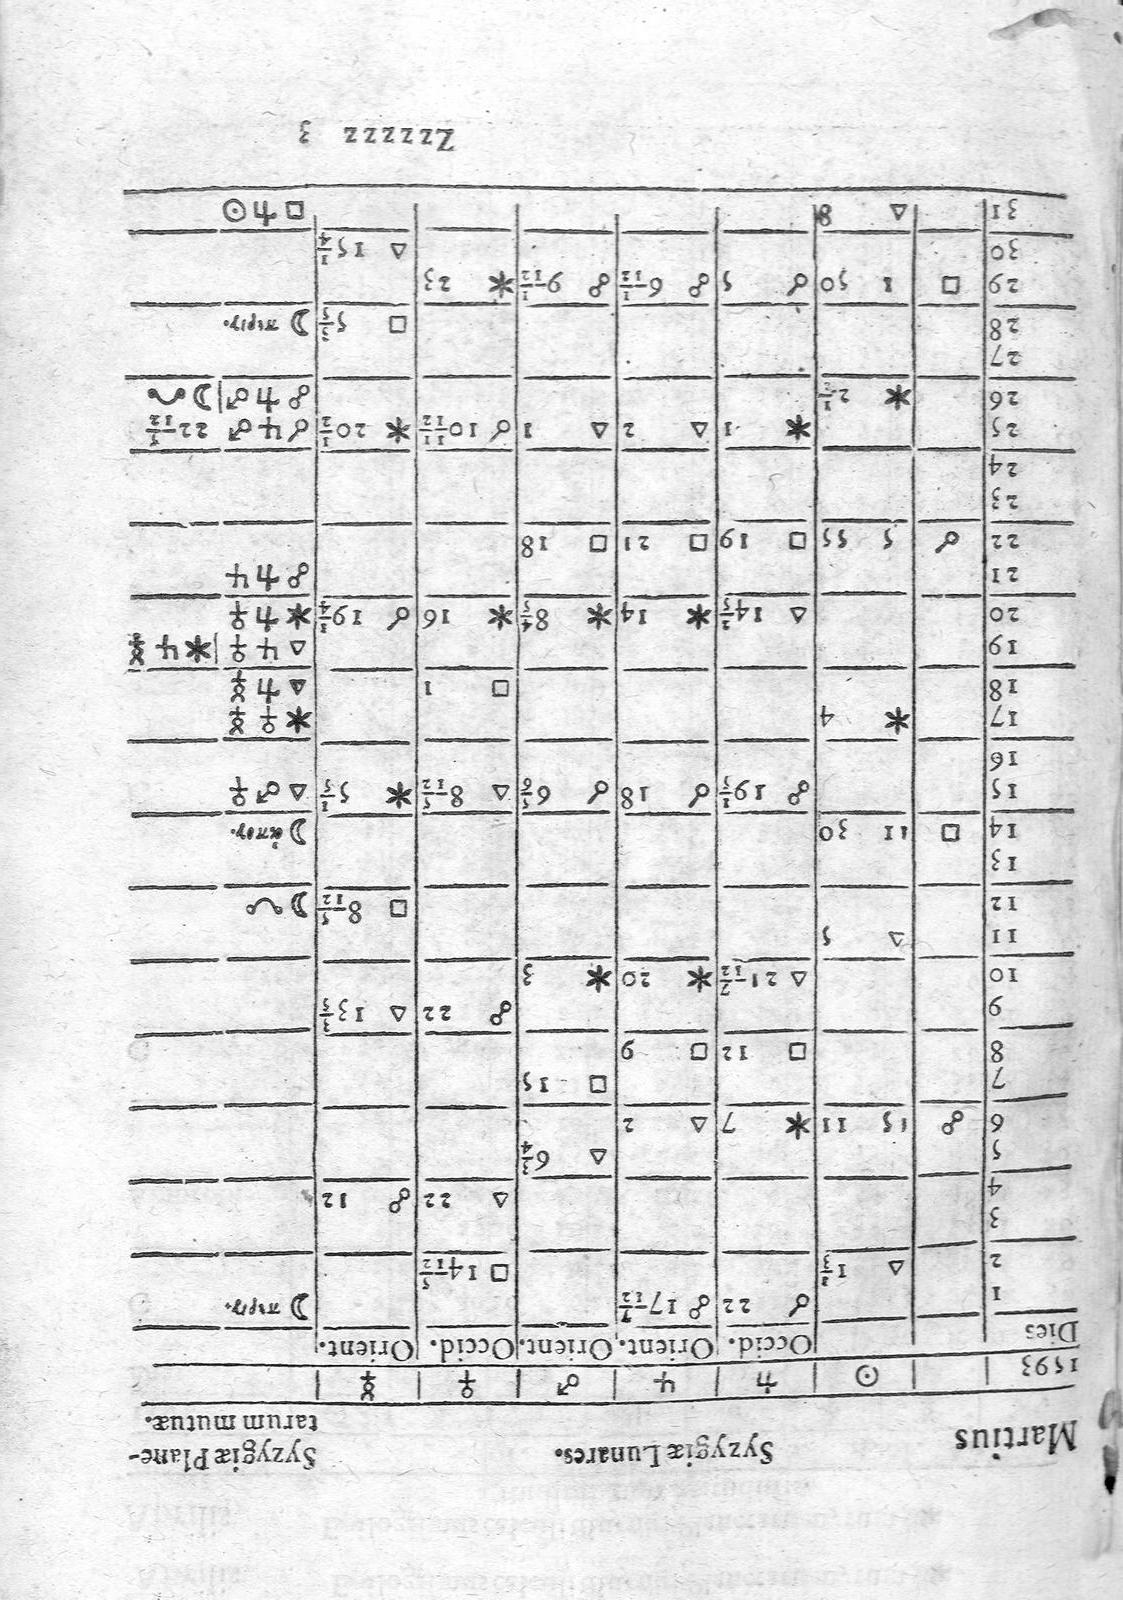 Martius Syzygiæ Lunares. Syzygiæ Plane-
tarum mutuæ.
1593 ☉ ♄ ♃ ♂ ♀ ☿
Dies Occid. Orient. Orient. Occid. Orient.
1 ☌ 22 ☍ 17 7/12 ☽ περιγ.
2 △ 1 2/3 □ 14 5/12
3
4 △ 22 ☍ 12
5 △ 6 3/4
6 ☍ 15 11 ✶ 7 △ 2
7 □ 15
8 □ 12 □ 9
9 ☍ 22 △ 13 3/5
10 △ 21 7/12 ✶ 20 ✶ 3
11 △ 5
12 □ 8 5/12 ☽ ☊
13
14 □ 11 30 ☽ ἀπογ.
15 ☍ 19 1/5 ☌ 18 ☌ 6 5/6 △ 8 5/12 ✶ 5 1/5 △ ♂ ♀
16
17 ✶ 4 ✶ ♀ ☿
18 □ 1 △ ♄ ☿
19 △ ♃ ♀ | ✶ ♃ ☿
20 △ 14 2/5 ✶ 14 ✶ 8 4/5 ✶ 16 ☌ 19 3/4 ✶ ♄ ♀
21 ☍ ♄ ♃
22 ☌ 5 55 □ 19 □ 21 □ 18
23
24
25 ✶ 1 △ 2 △ 1 ☌ 10 11/12 ✶ 20 1/2 ☌ ♃ ♂ 22 5/12
26 ✶ 2 1/2 ☍ ♄ ♂ | ☽ ☋
27
28 □ 5 3/5 ☽ περιγ.
29 □ 1 50 ☌ 5 ☍ 6 1/12 ☍ 9 1/12 ✶ 23
30 △ 15 1/4
31 △ 8 □ ♄ ☉
Zzzzzz 3